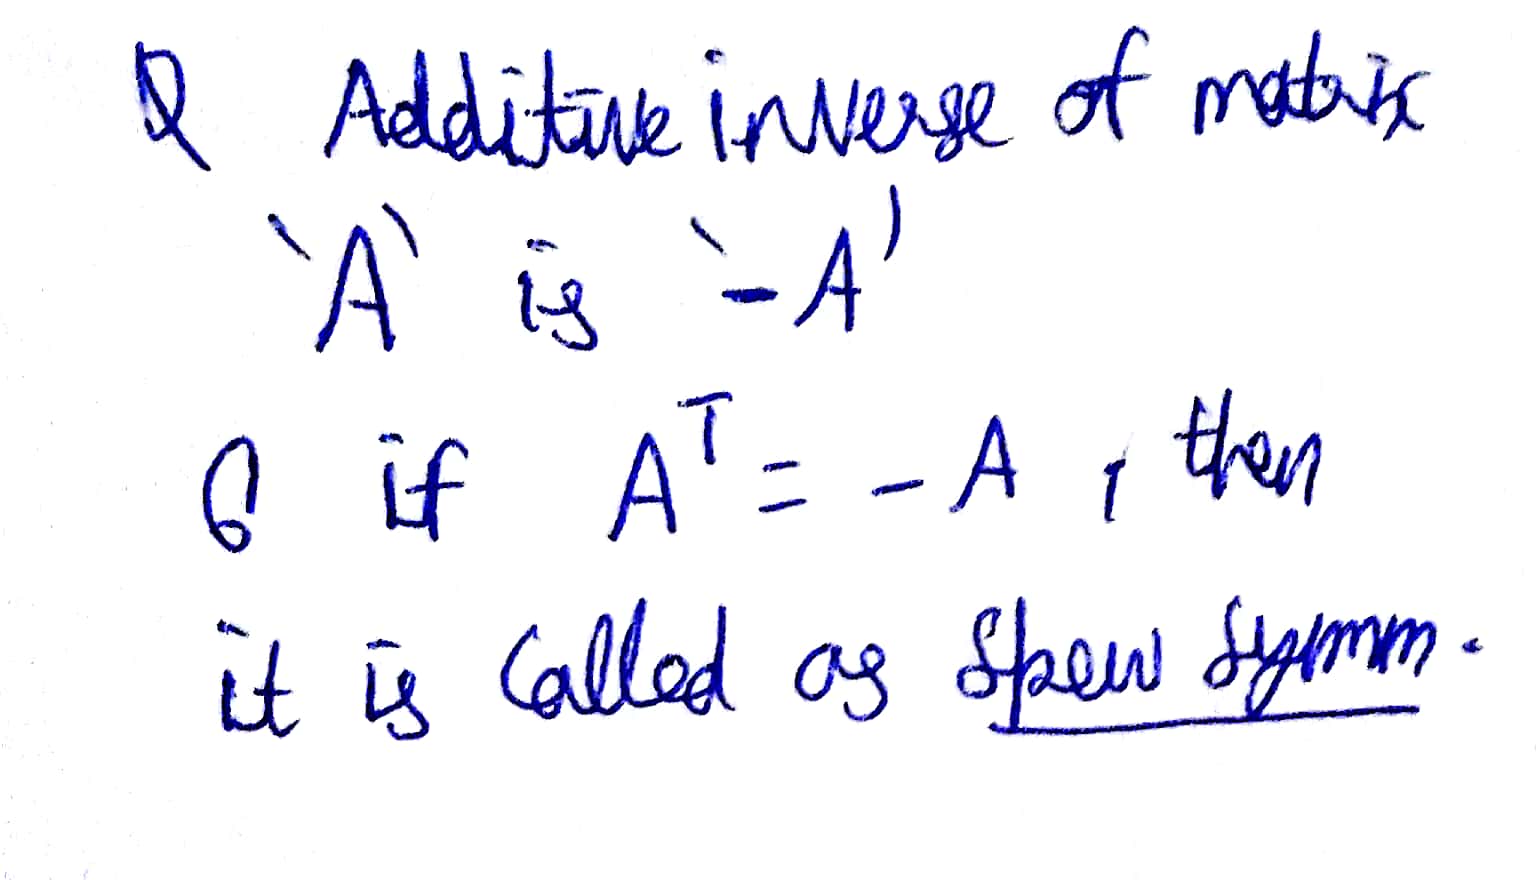 Q Additive inverse of matrix
`A` is `-A'
6 if Aᵀ = - A , then
it is called as Skew Symm.